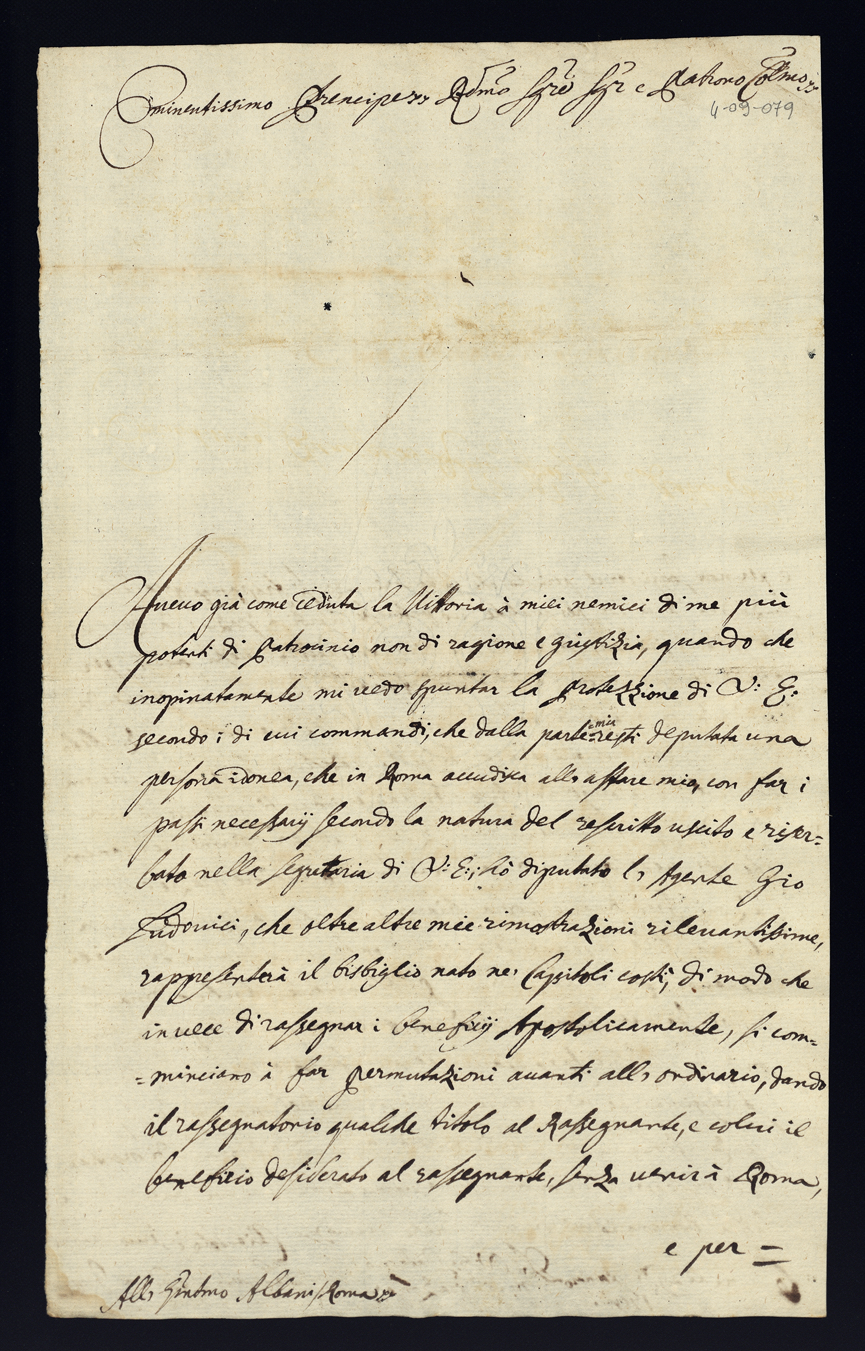 Eminentissimo Prencipe Rdmo Sigre Sigr e Patrono Colmo
4-09-079
Aueuo già come ceduta la Uittoria à miei nemici di me più
potenti di Patrocinio non di ragione e giustizia, quando che
inopinatamente mi uedo spuntar la protezzione di V: E:
secondo i di cui commandi, che dalla parte mia resti deputata una
persona idonea, che in Roma accudisca allo affare mio, con far i
passi necessarij secondo la natura del rescritto uscito e riser=
bato nella segretaria di V: E:, hò diputato lo Agente Gio
Ludouici, che oltre altre mie rimostrazioni rileuantissime,
rappresenterà il bisbiglio nato ne' Capitoli costì, di modo che
in uece di rassegnar i beneficij Apostolicamente, si com=
=minciano à far permutazioni auanti allo ordinario, dando
il rassegnatorio qualche titolo al Rassegnante, e colui il
beneficio desiderato al rassegnante, senza uenir à Roma,
e per =
Allo Emdmo Albani Roma